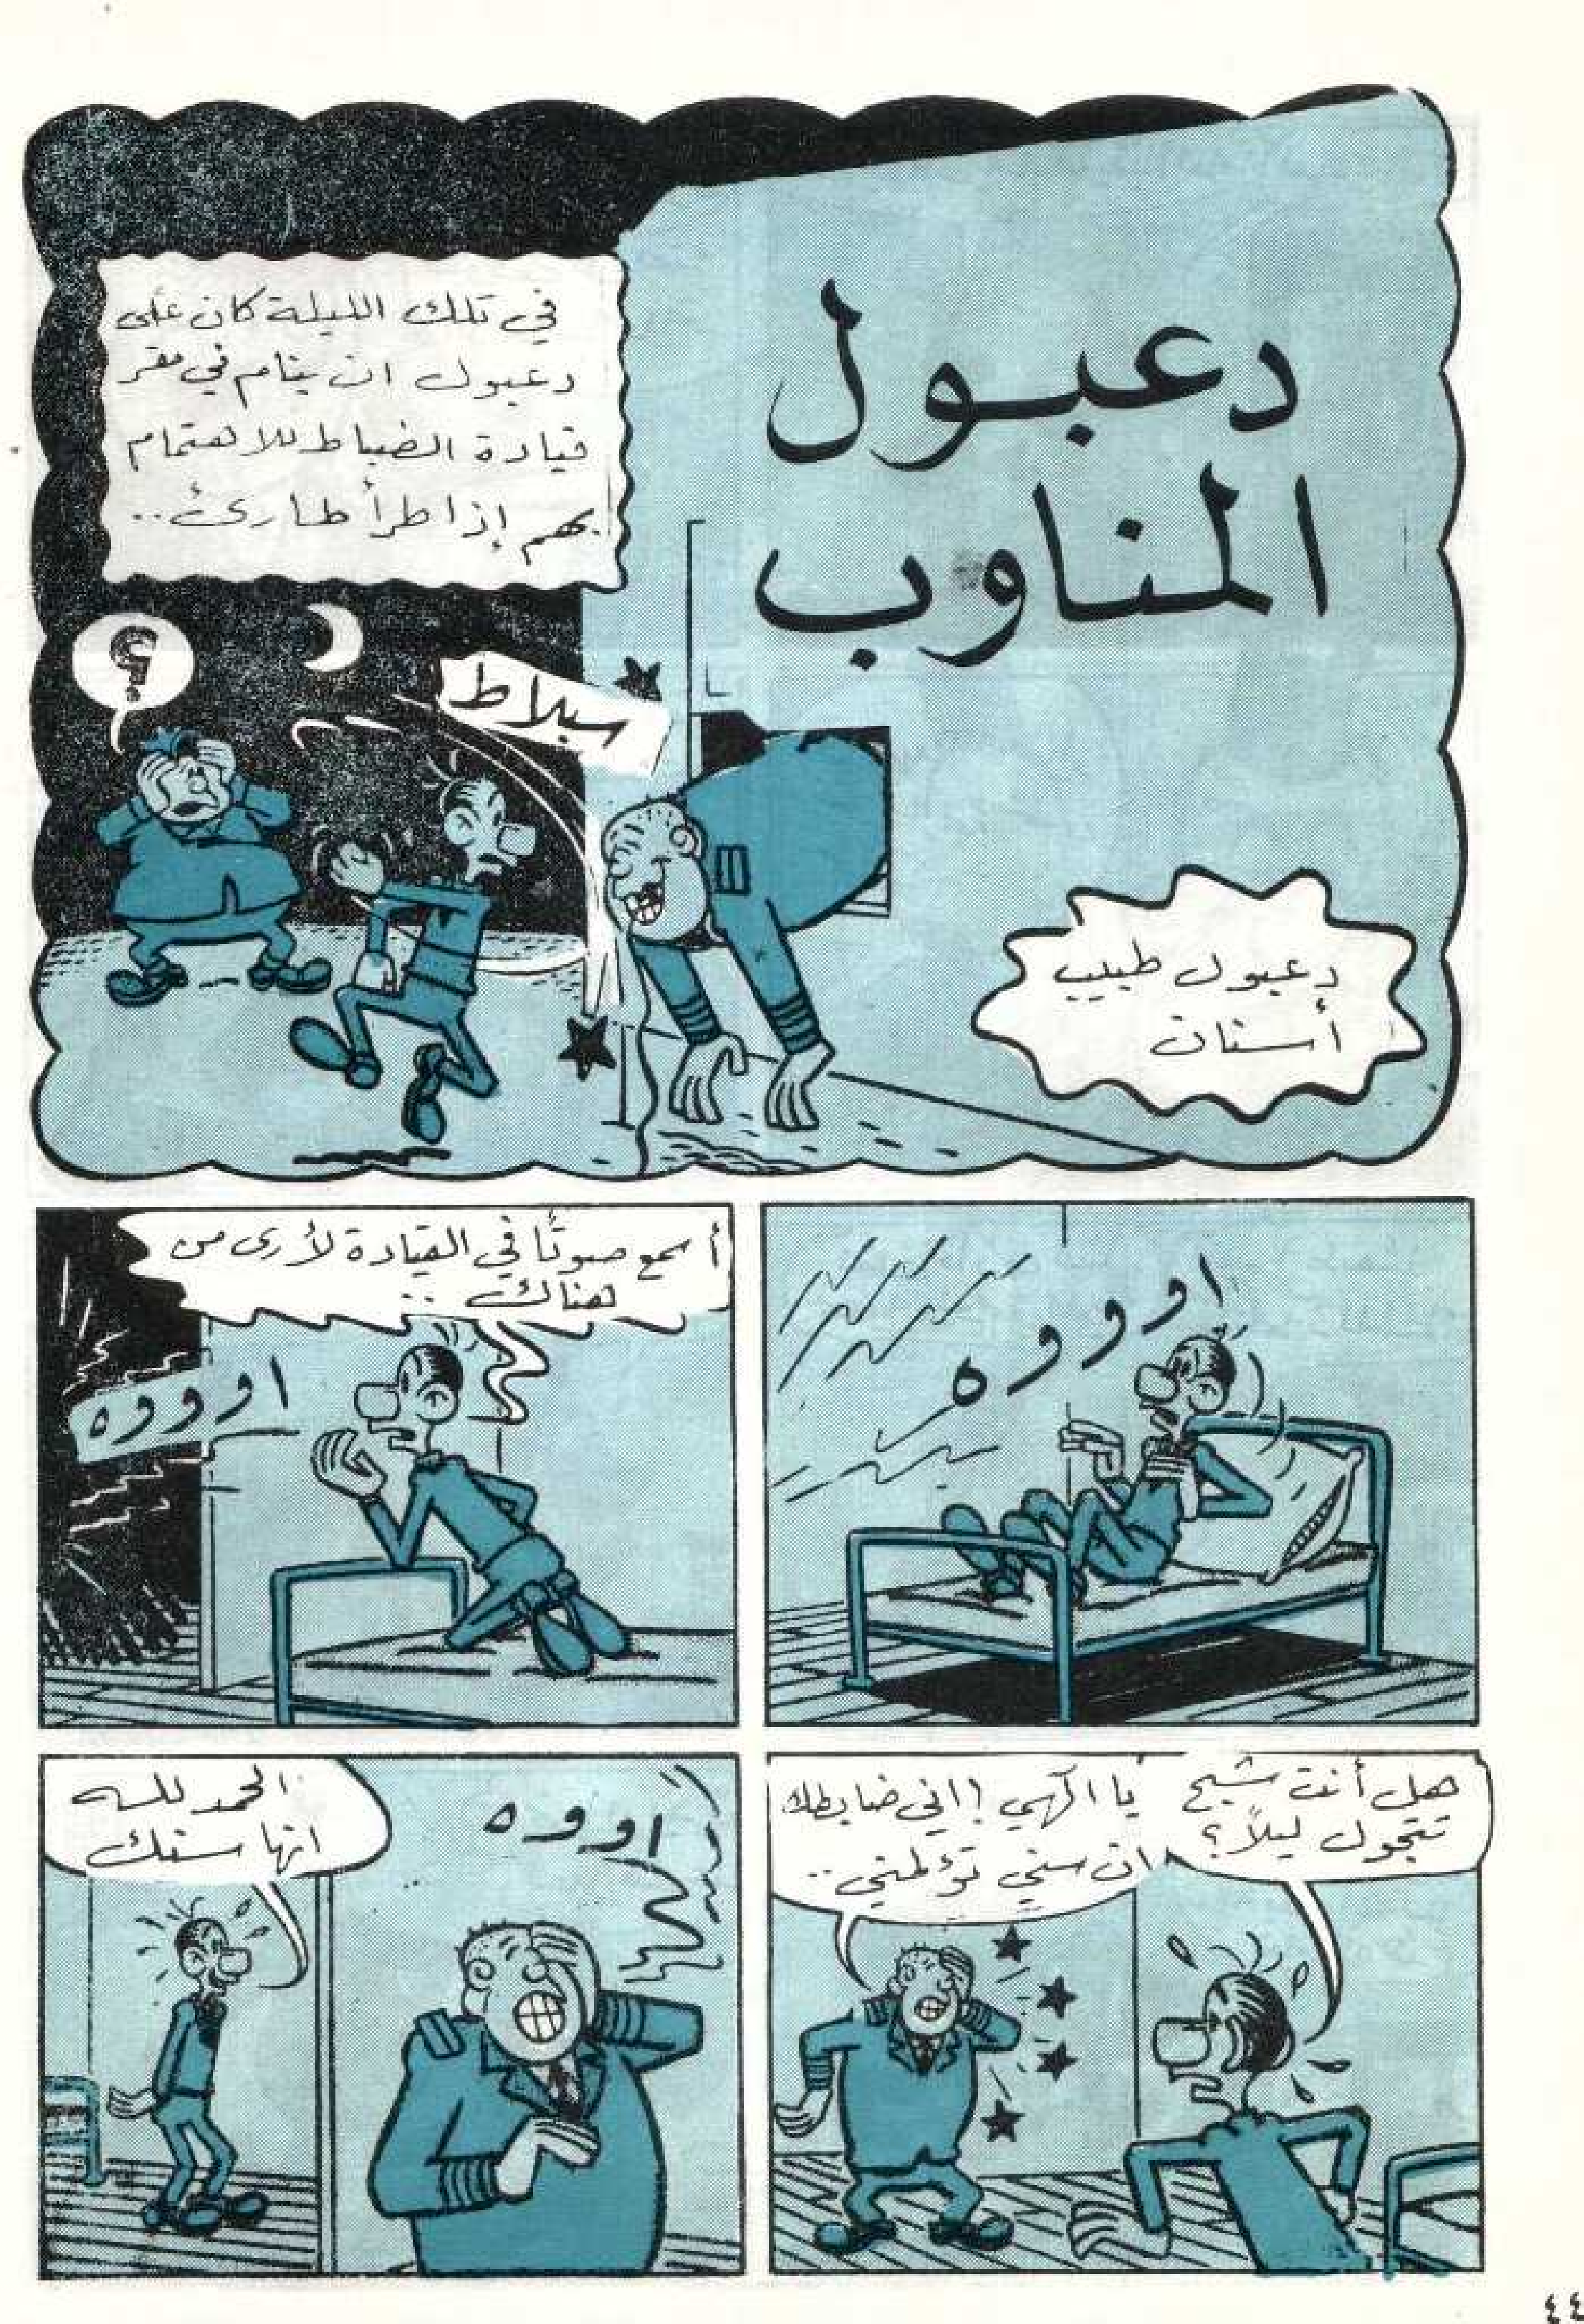 دعبول
المناوب
في تلك الليلة كان على
دعبول ان ينام في مقر
قيادة الضباط للاهتمام
بهم إذا طرأ طارئ..
؟
سبلاط
دعبول طبيب
أسنان
اوووه
أسمع صوتًا في القيادة لأرى من
هناك..
اوووه
هل أنت شبح
تتجول ليلاً؟
يا الهي! اني ضابطك
ان سني تؤلمني..
اووه
الحمد لله
انها سنك
٤٤